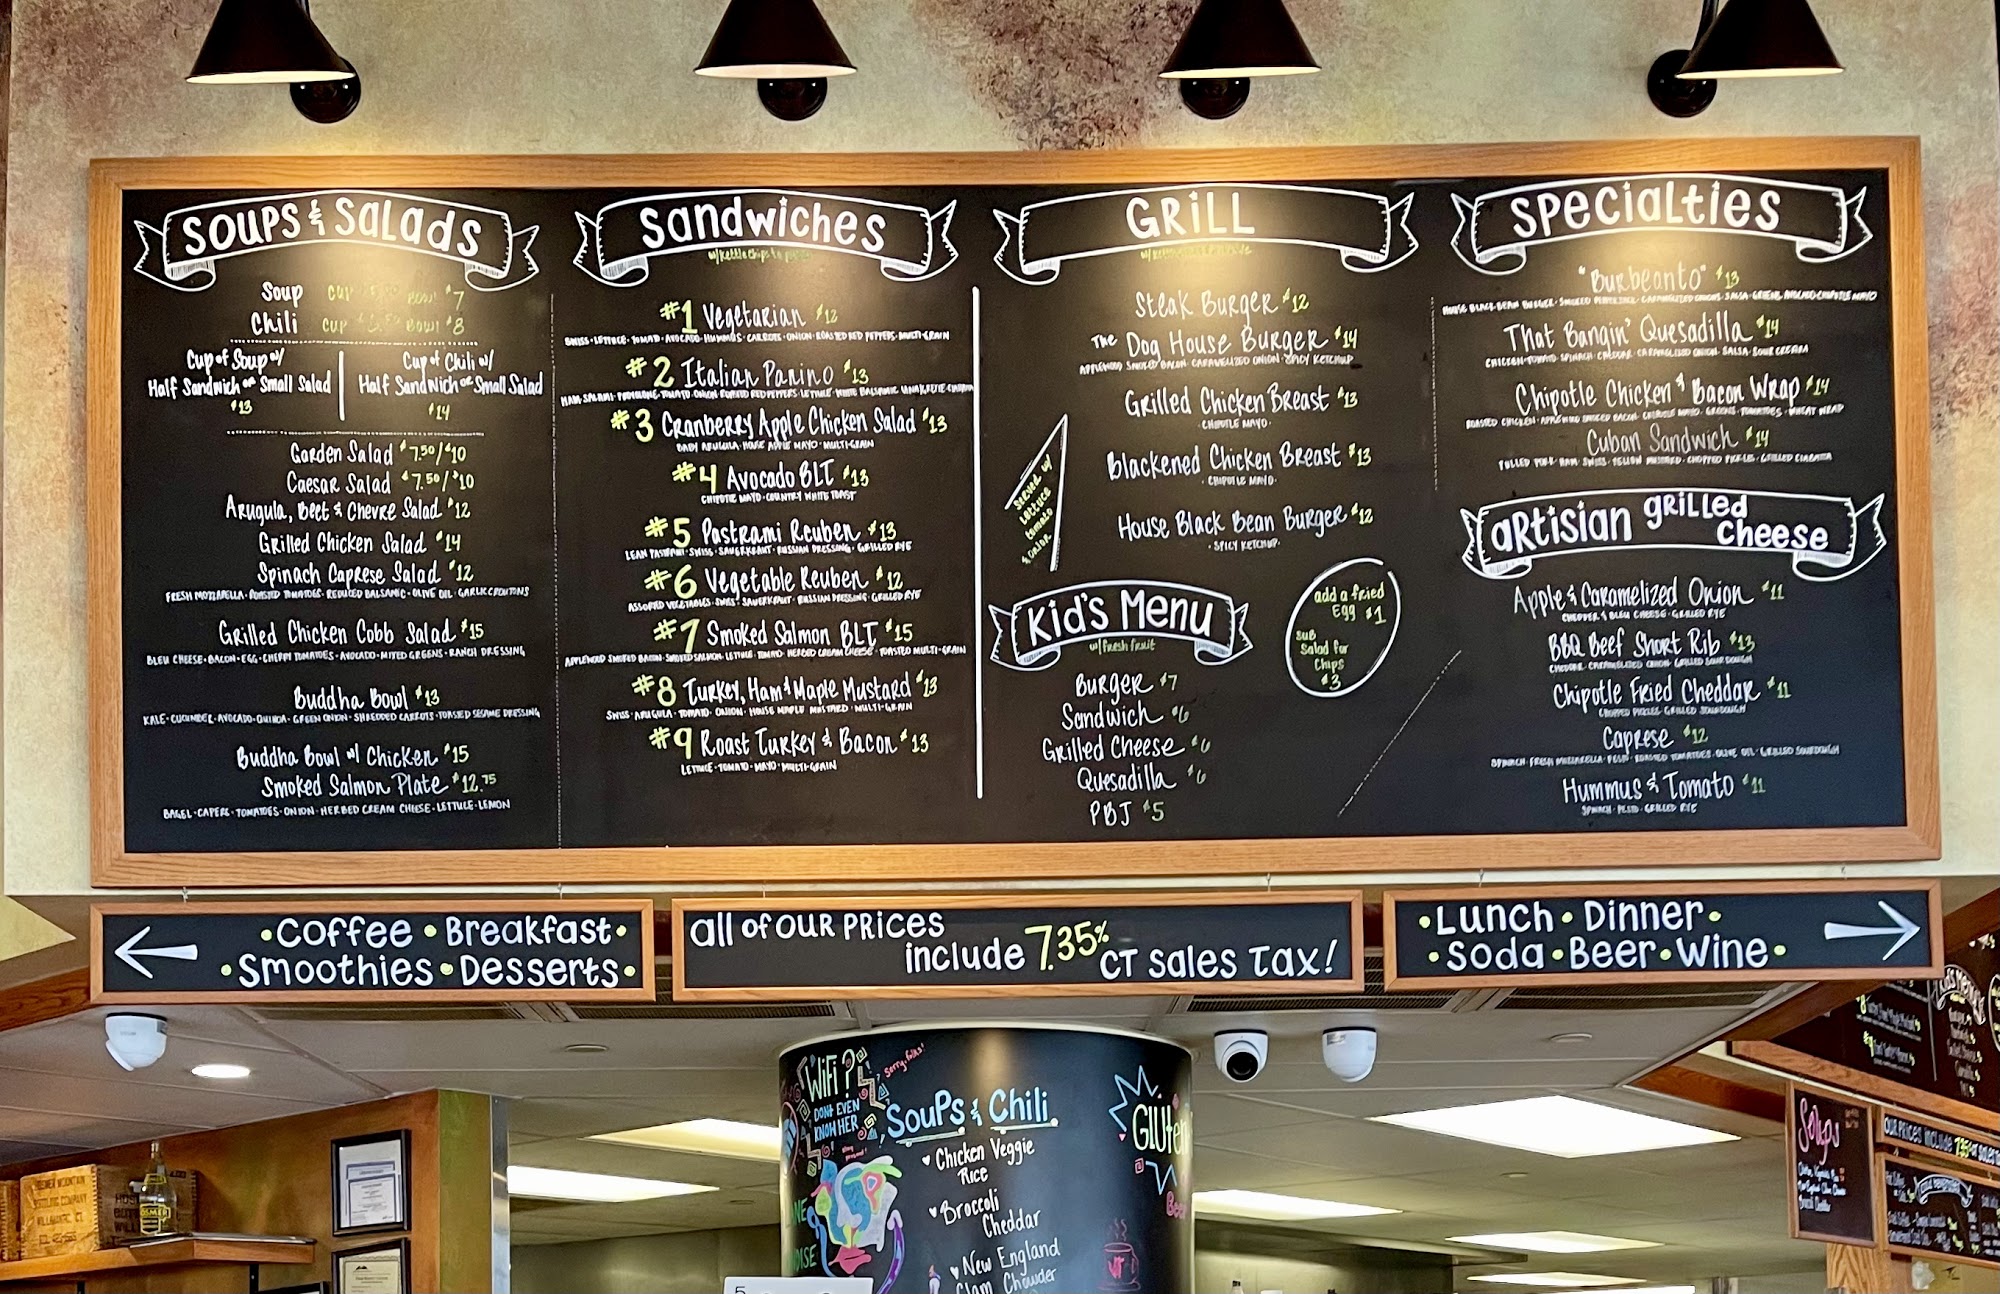 Soups & Salads
Soup cup bowl $7
Chili cup bowl $8
Cup of Soup w/
Half Sandwich or Small Salad
$13
Cup of Chili w/
Half Sandwich or Small Salad
$14
Garden Salad $7.50/$10
Caesar Salad $7.50/$10
Arugula, Beet & Chevre Salad $12
Grilled Chicken Salad $14
Spinach Caprese Salad $12
FRESH MOZZARELLA · ROASTED TOMATOES · REDUCED BALSAMIC · OLIVE OIL · GARLIC CROUTONS
Grilled Chicken Cobb Salad $15
BLEU CHEESE · BACON · EGG · CHERRY TOMATOES · AVOCADO · MIXED GREENS · RANCH DRESSING
Buddha Bowl $13
KALE · CUCUMBER · AVOCADO · QUINOA · GREEN ONION · SHREDDED CARROTS · TOASTED SESAME DRESSING
Buddha Bowl w/ Chicken $15
Smoked Salmon Plate $12.75
BAGEL · CAPERS · TOMATOES · ONION · HERBED CREAM CHEESE · LETTUCE · LEMON
Sandwiches
w/kettle chips
#1 Vegetarian $12
SWISS · LETTUCE · TOMATO · AVOCADO · HUMMUS · CARROTS · ONION · ROASTED RED PEPPERS · MULTI-GRAIN
#2 Italian Panino $13
HAM · SALAMI · PROVOLONE · TOMATO · ONION · ROASTED RED PEPPERS · LETTUCE · WHITE BALSAMIC VINAIGRETTE · CIABATTA
#3 Cranberry Apple Chicken Salad $13
BABY ARUGULA · HOUSE APPLE MAYO · MULTI-GRAIN
#4 Avocado BLT $13
CHIPOTLE MAYO · COUNTRY WHITE TOAST
#5 Pastrami Reuben $13
LEAN PASTRAMI · SWISS · SAUERKRAUT · RUSSIAN DRESSING · GRILLED RYE
#6 Vegetable Reuben $12
ASSORTED VEGETABLES · SWISS · SAUERKRAUT · RUSSIAN DRESSING · GRILLED RYE
#7 Smoked Salmon BLT $15
APPLEWOOD SMOKED BACON · SMOKED SALMON · LETTUCE · TOMATO · HERBED CREAM CHEESE · TOASTED MULTI-GRAIN
#8 Turkey, Ham & Maple Mustard $13
SWISS · ARUGULA · TOMATO · ONION · HOUSE MAPLE MUSTARD · MULTI-GRAIN
#9 Roast Turkey & Bacon $13
LETTUCE · TOMATO · MAYO · MULTI-GRAIN
GRiLL
Steak Burger $12
The Dog House Burger $14
APPLEWOOD SMOKED BACON · CARAMELIZED ONION · SPICY KETCHUP
Grilled Chicken Breast $13
· CHIPOTLE MAYO ·
Blackened Chicken Breast $13
· CHIPOTLE MAYO ·
House Black Bean Burger $12
· SPICY KETCHUP ·
served w/
lettuce
tomato
& onion
Kid's Menu
w/fresh fruit
Burger $7
Sandwich $6
Grilled Cheese $6
Quesadilla $6
PBJ $5
add a fried
Egg $1
sub
Salad for
Chips
$3
Specialties
"Burbeanto" $13
HOUSE BLACK BEAN BURGER · SMOKED PEPPERJACK · CARAMELIZED ONIONS · SALSA · GREENS · AVOCADO · CHIPOTLE MAYO
That Bangin' Quesadilla $14
CHICKEN · TOMATO · SPINACH · CHEDDAR · CARAMELIZED ONION · SALSA · SOUR CREAM
Chipotle Chicken & Bacon Wrap $14
ROASTED CHICKEN · APPLEWOOD SMOKED BACON · CHIPOTLE MAYO · GREENS · TOMATOES · WHEAT WRAP
Cuban Sandwich $14
PULLED PORK · HAM · SWISS · YELLOW MUSTARD · CHOPPED PICKLES · GRILLED CIABATTA
aRtisian gRilled
cheese
Apple & Caramelized Onion $11
CHEDDER & BLEU CHEESE · GRILLED RYE
BBQ Beef Short Rib $13
CHEDDAR · CARAMELIZED ONION · GRILLED SOURDOUGH
Chipotle Fried Cheddar $11
CHOPPED PICKLES · GRILLED SOURDOUGH
Caprese $12
SPINACH · FRESH MOZZARELLA · PESTO · ROASTED TOMATOES · OLIVE OIL · GRILLED SOURDOUGH
Hummus & Tomato $11
SPINACH · PESTO · GRILLED RYE
· Coffee · Breakfast ·
· Smoothies · Desserts ·
all of our prices
include 7.35% CT sales tax!
· Lunch · Dinner ·
· Soda · Beer · Wine ·
WiFi?
DON'T EVEN
KNOW HER
sorry, folks!
Soups & Chili
Chicken Veggie
Rice
Broccoli
Cheddar
New England
Clam Chowder
Gluten
Soups
OUR PRICES INCLUDE 7.35%